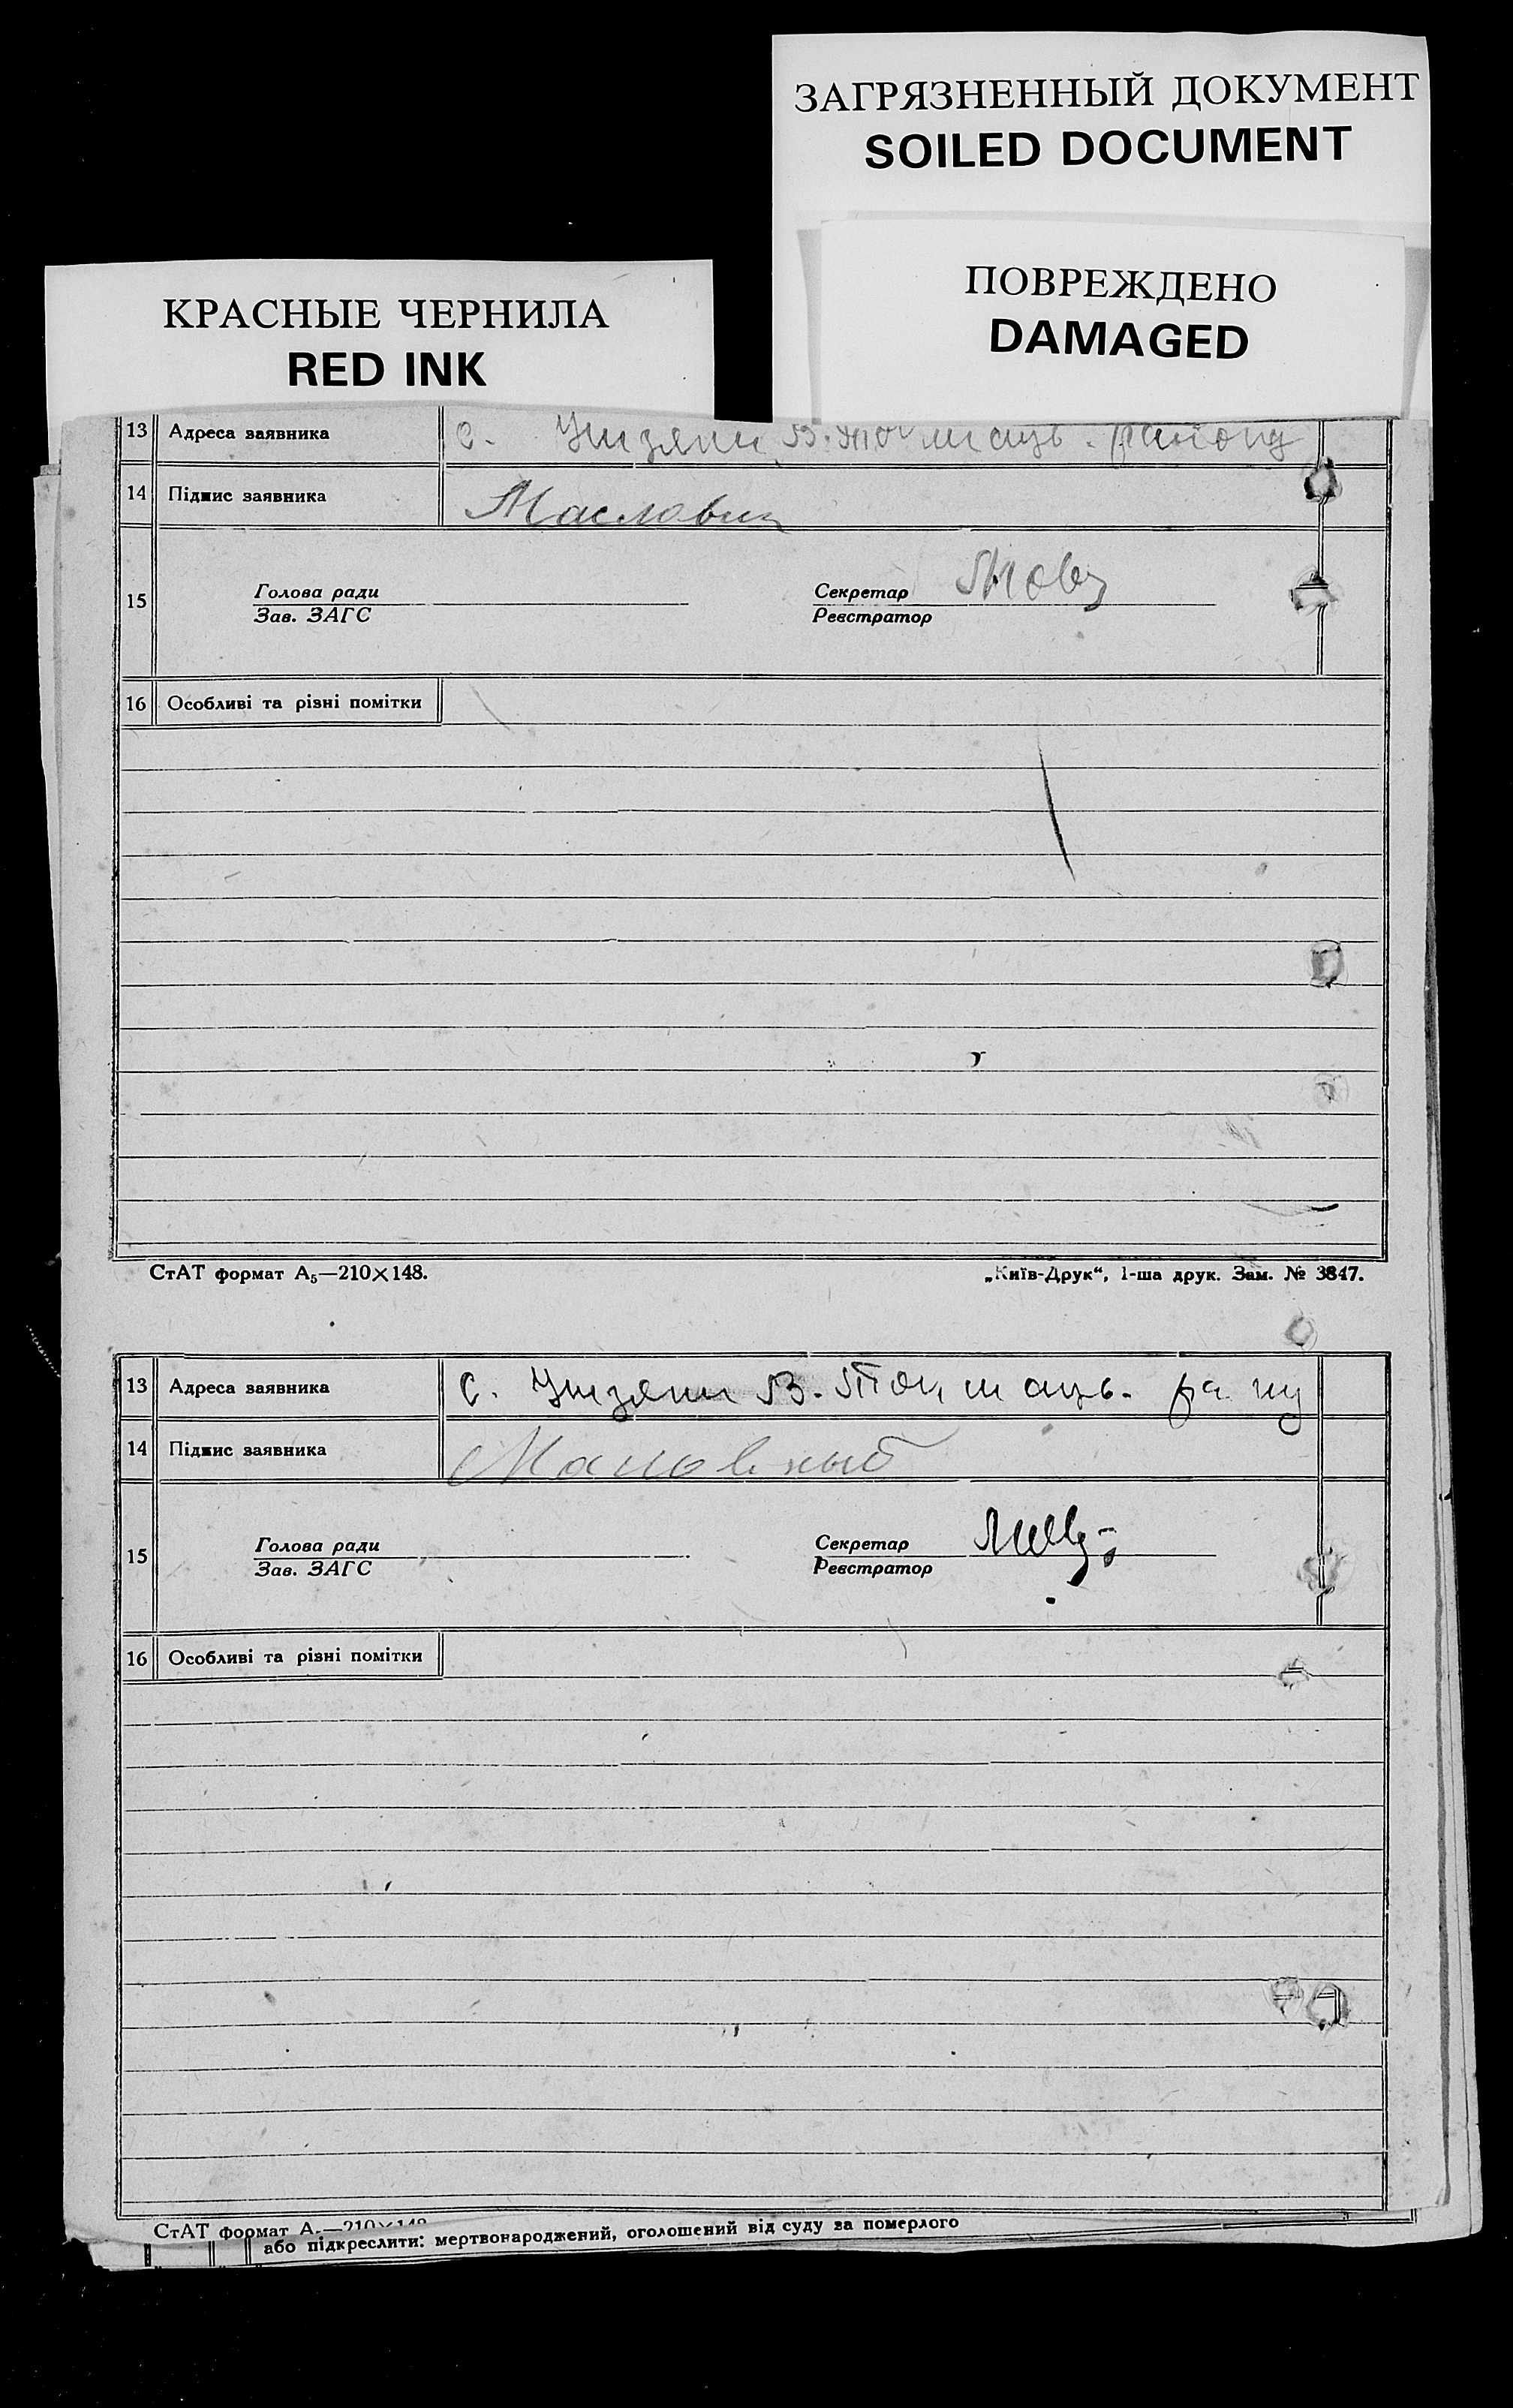 ЗАГРЯЗНЕННЫЙ ДОКУМЕНТ
SOILED DOCUMENT
ПОВРЕЖДЕНО
DAMAGED
КРАСНЫЕ ЧЕРНИЛА
RED INK
13 Адреса заявника с.
14 Підпис заявника
15 Голова ради Секретар
Зав. ЗАГС Реєстратор
16 Особливі та різні помітки
СтАТ формат А₅—210×148. „Київ-Друк“, 1-ша друк. Зам. № 3847.
13 Адреса заявника с.
14 Підпис заявника
15 Голова ради Секретар
Зав. ЗАГС Реєстратор
16 Особливі та різні помітки
СтАТ формат А₅—210×148
або підкреслити: мертвонароджений, оголошений від суду за померлого